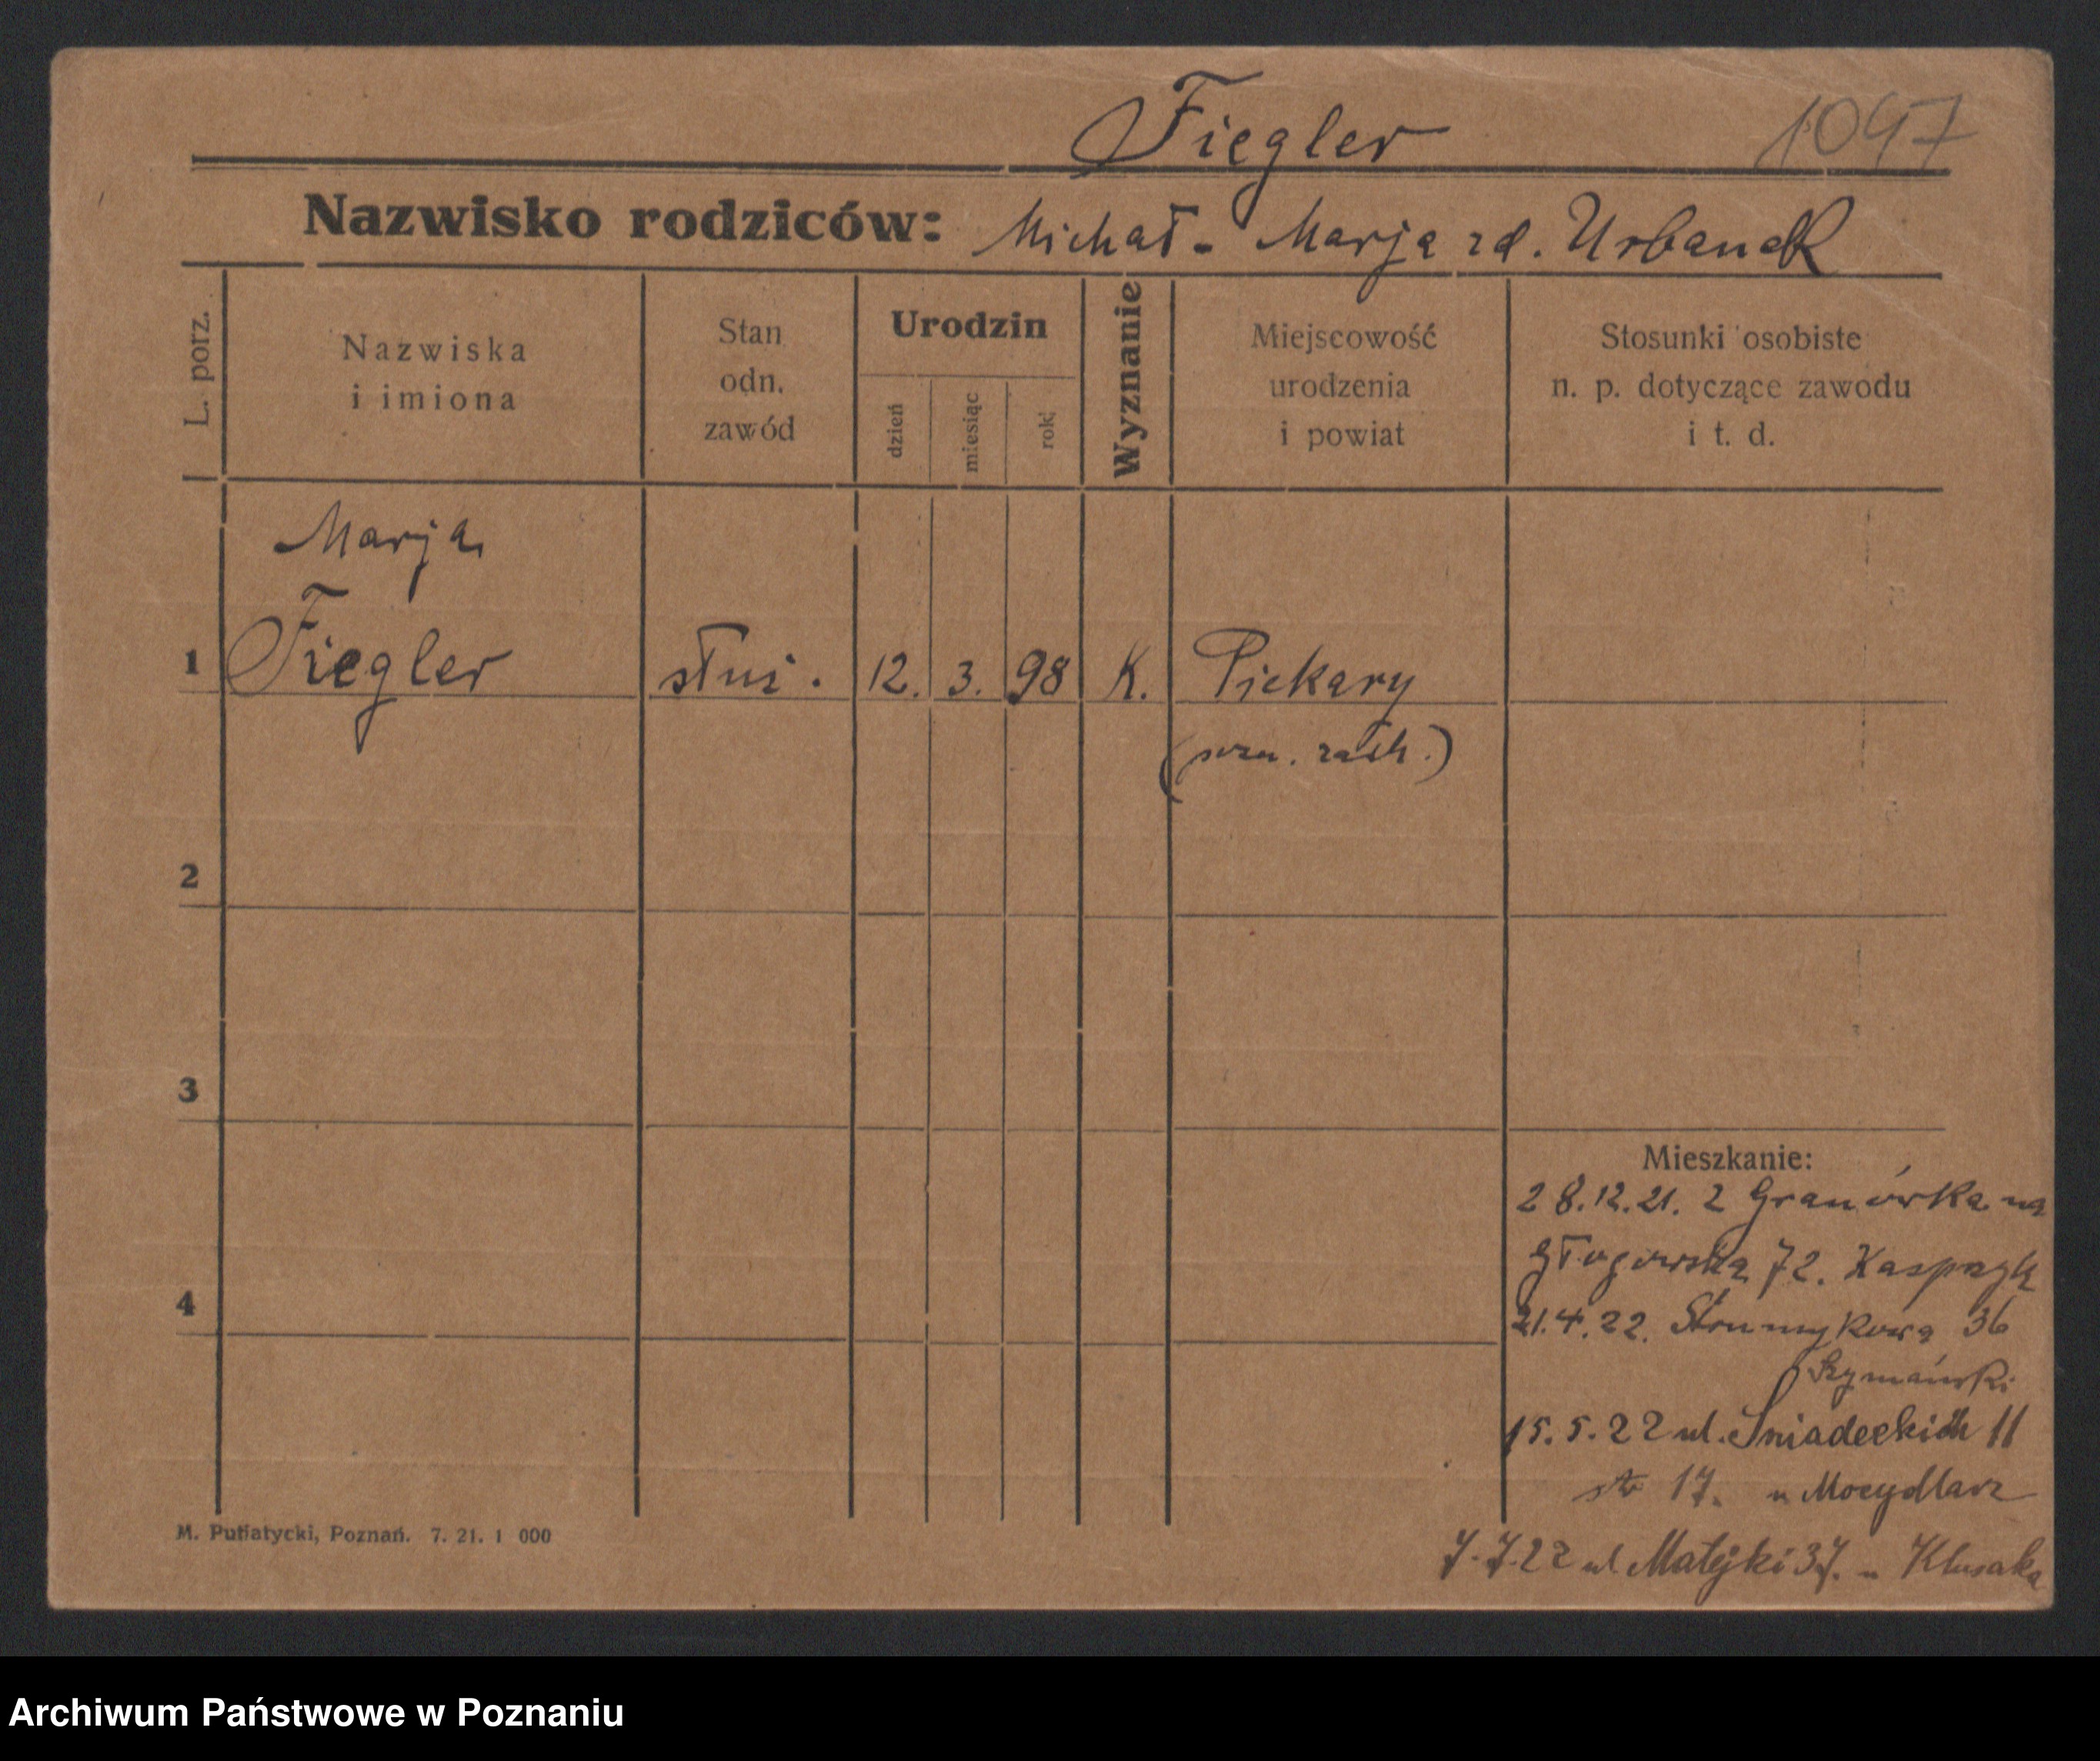 Fiegler 1047
Nazwisko rodziców: Michał - Marja zd. Urbanek
L. porz.
Nazwiska
i imiona
Stan
odn.
zawód
Urodzin
dzień
miesiąc
rok
Wyznanie
Miejscowość
urodzenia
i powiat
Stosunki osobiste
n. p. dotyczące zawodu
i t. d.
Marja
1 Fiegler służ. 12. 3. 98 K. Piekary
(pozn. zach.)
2
3
Mieszkanie:
28.12.21. z Granówka na
4
Głogowska 72. Kasprzyk
21.4.22. Strumykowa 36
Szymański
15.5.22 ul. Śniadeckich 11
17. u Mocydlarz
M. Putiatycki, Poznań. 7. 21. 1 000
7.7.22 ul Matejki 37. u Klusaka
Archiwum Państwowe w Poznaniu